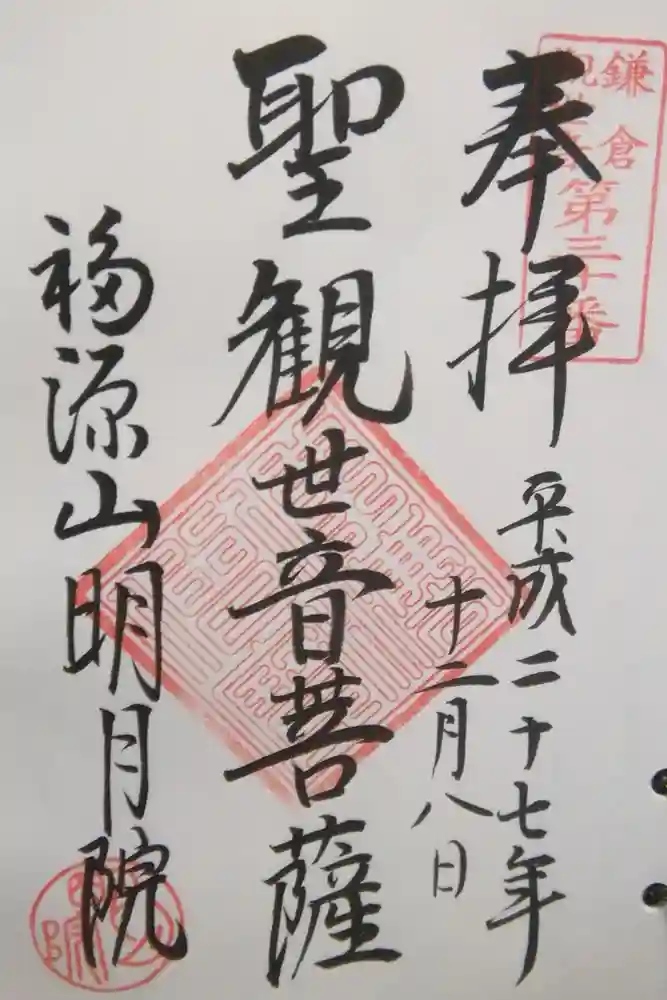 鎌倉
観世音
第三十番
奉拝
平成二十七年
十二月八日
聖観世音菩薩
福源山明月院